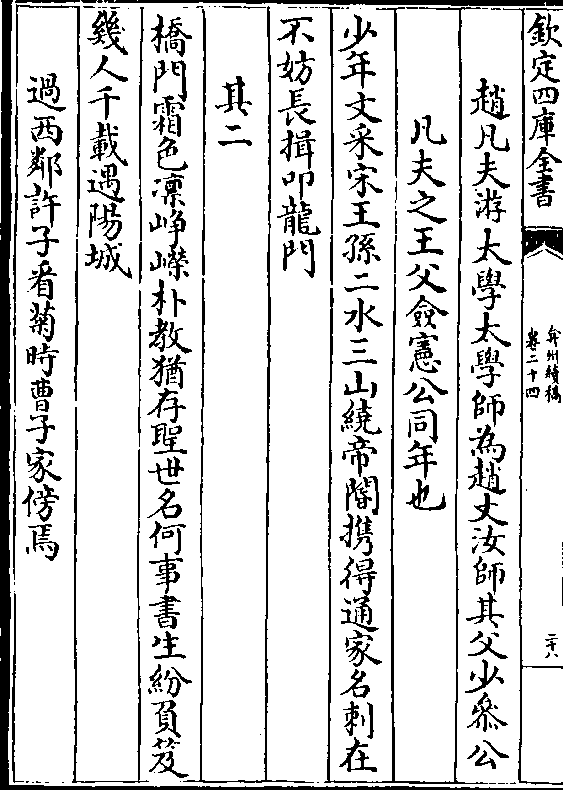 欽定四庫全書
弇州續稿
卷二十四
二十八
趙凡夫游太學太學師為趙丈汝師其父少叅公
凡夫之王父僉憲公同年也
少年文采宋王孫二水三山繞帝閽携得通家名刺在
不妨長揖叩龍門
其二
橋門霜色凛崢嶸朴教猶存聖世名何事書生紛負笈
幾人千載遇陽城
過西鄰許子看菊時曹子家傍焉